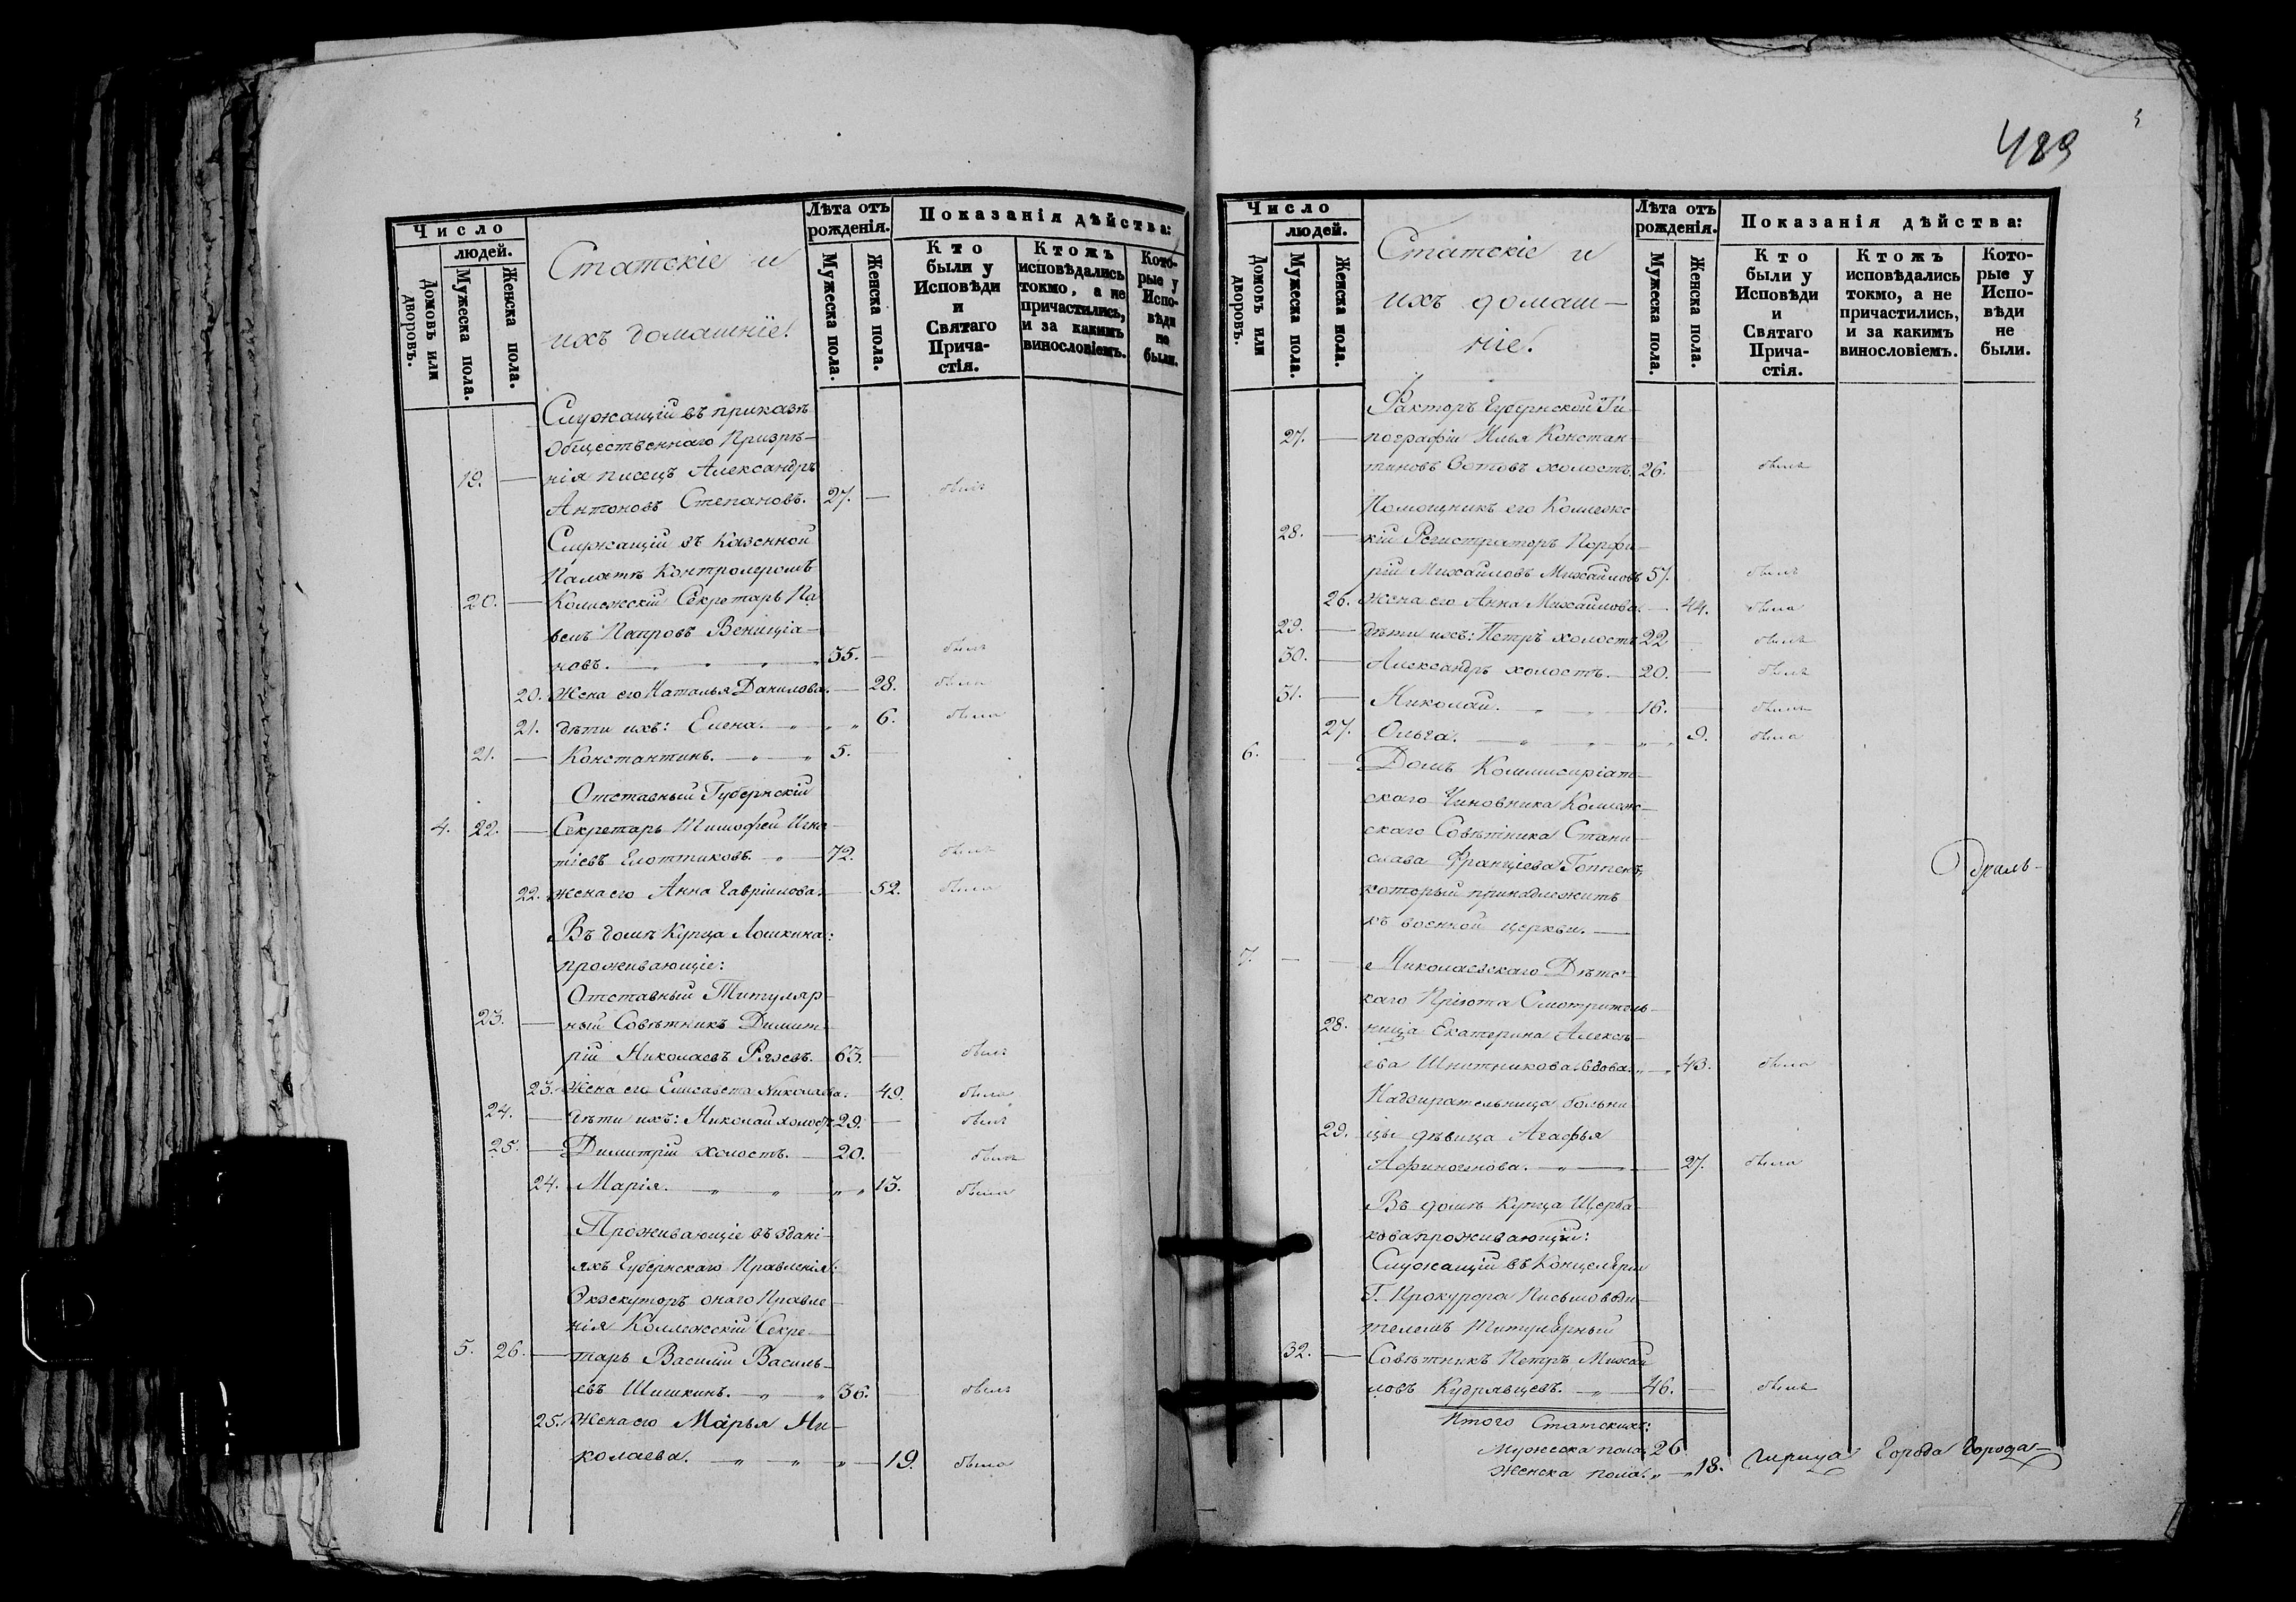 489
Число
людей.
Домовъ или дворовъ.
Мужеска пола.
Женска пола.
Статскіе и
ихъ домашніе.
Лѣта отъ рожденія.
Мужеска пола.
Женска пола.
Показанія дѣйства:
Кто были у Исповѣди и Святаго Причастія.
Ктожъ исповѣдались токмо, а не причастились, и за какимъ винословіемъ.
Которые у Исповѣди не были.
Служащій въ приказѣ
Общественнаго Призрѣ-
19. — нія писецъ Александръ
Антоновъ Степановъ. 27. — былъ
Служащій въ Казенной
Палатѣ Контролеромъ
20. — Колежскій Секретарь Па
велъ Петровъ Вениціа-
новъ. 35. — былъ
20. Жена его Наталья Данилова. — 28. была
21. дѣти ихъ: Елена. 6. была
21. — Константинъ. 5. —
Отставный Губернскій
4. 22. — Секретарь Тимофей Игна-
тіевъ 72. былъ
22. жена его Анна Гавріилова. — 52. была
Въ домѣ Купца Лошкина:
проживающіе:
Отставный Титуляр-
23. — ный Совѣтникъ Димит-
рій Николаевъ 63. — былъ
23. Жена его Елисавета Николаева. — 49. была
24. — дѣти ихъ: Николай холостъ 29. — былъ
25. — Димитрій холостъ. — 20. — былъ
24. Марія. 13. была
Проживающіе въ здані-
яхъ Губернскаго Правленія:
Экзекуторъ онаго Правле-
нія Коллежскій Секре-
5. 26. — тарь Василій Василь-
евъ Шишкинъ. 36. — былъ
25. Жена его Марья Ни-
колаева. 19. была
Число
людей.
Домовъ или дворовъ.
Мужеска пола.
Женска пола.
Статскіе и
ихъ домаш-
ніе.
Лѣта отъ рожденія.
Мужеска пола.
Женска пола.
Показанія дѣйства:
Кто были у Исповѣди и Святаго Причастія.
Ктожъ исповѣдались токмо, а не причастились, и за какимъ винословіемъ.
Которые у Исповѣди не были.
Факторъ Губернской Ти-
27. — пографіи Илья Констан-
тиновъ холостъ. 26. — былъ
Помощникъ его Коллежс-
28. — кій Регистраторъ Порфи-
рій Михайловъ Михайловъ 57. былъ
26. Жена его Анна Михайлова. — 44. была
29. — дѣти ихъ: Петръ холостъ 22 былъ
30. — Александръ холостъ. — 20. — былъ
31. — Николай. 16. — былъ
27. Ольга. 9. была
6. — — Домъ Коммисаріат-
скаго Чиновника Коллеж-
скаго Совѣтника Стани-
слава Францiева Гоппенъ,
который принадлежитъ
къ военной церкви. —
7. — — Николаевскаго Дѣтс-
каго Пріюта Смотритель-
28. ница Екатерина Алексѣ-
ева Шнитникова вдова. 43. была
Надзирательница больни-
29. цы дѣвица Агафья
Афиногенова. 27. была
Въ домѣ Купца Щерба-
кова проживающіи:
Служащій въ Канцеляріи
Г. Прокурора Письмоводи-
телемъ Титулярный
32. — Совѣтникъ Петръ Михай-
ловъ Кудрявцевъ. 46. — былъ
Итого Статскихъ:
Мужеска пола 26
Женска пола. 18.
Города Города